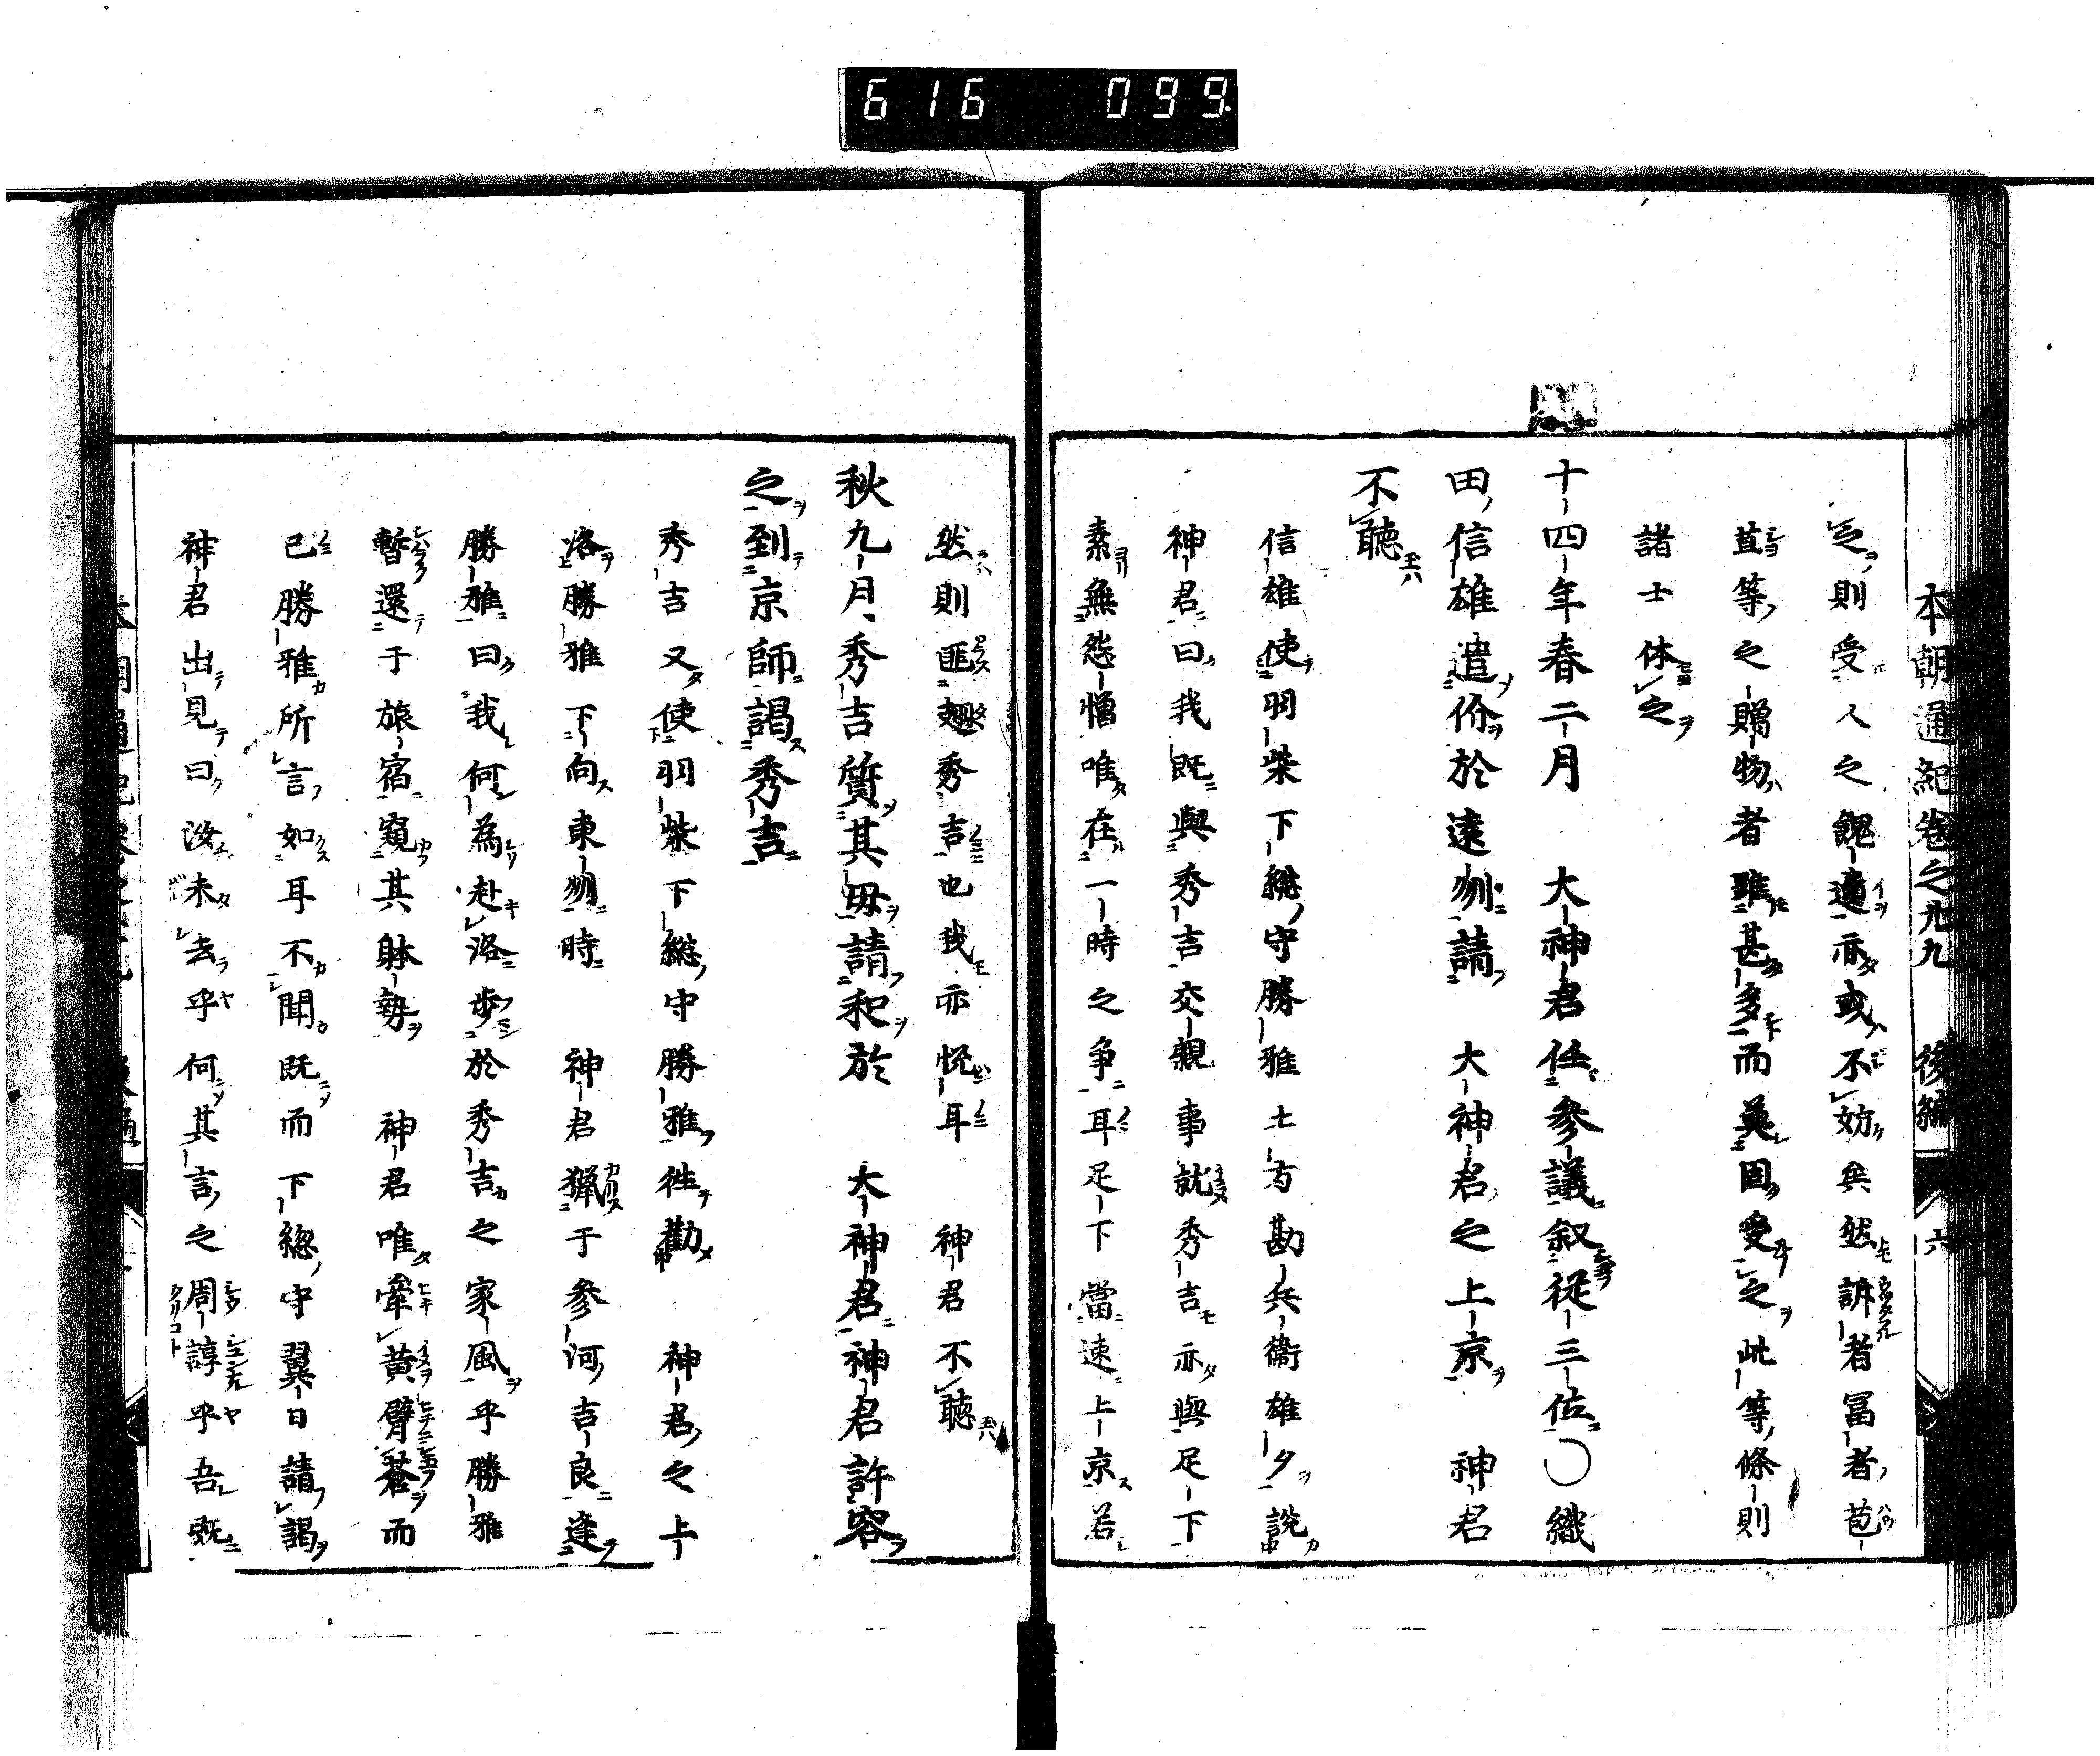 616 099
本朝通紀卷之廿九 後編 六
之則受人之餽遺亦或不妨矣然訴者冨者苞
苴等之贈物者雖甚多而莫固受之此等條則
諸士休之
十四年春二月 大神君任參議叙從三位〇織
田信雄遣价於遠州請 大神君之上京 神君
不聽
信雄使羽柴下総守勝雅土方勘兵衞雄久說
神君曰我既與秀吉交親事就秀吉亦與足下
素無怨憎唯在一時之争耳足下當速上京若
然則匪趐秀吉也我亦悦耳 神君不聽
秋九月秀吉質其毋請和於 大神君神君許容
之到京師謁秀吉
秀吉又使羽柴下総守勝雅徃勸 神君之上
洛勝雅下向東州時 神君獵于參河吉良逢
勝雅曰我何為赴洛步於秀吉之家風乎勝雅
暫還于旅宿窺其躰勢 神君唯牽黄臂蒼而
已勝雅所言如耳不聞既而下総守翼日請謁
神君出見曰汝未去乎何其言之周諄乎吾既